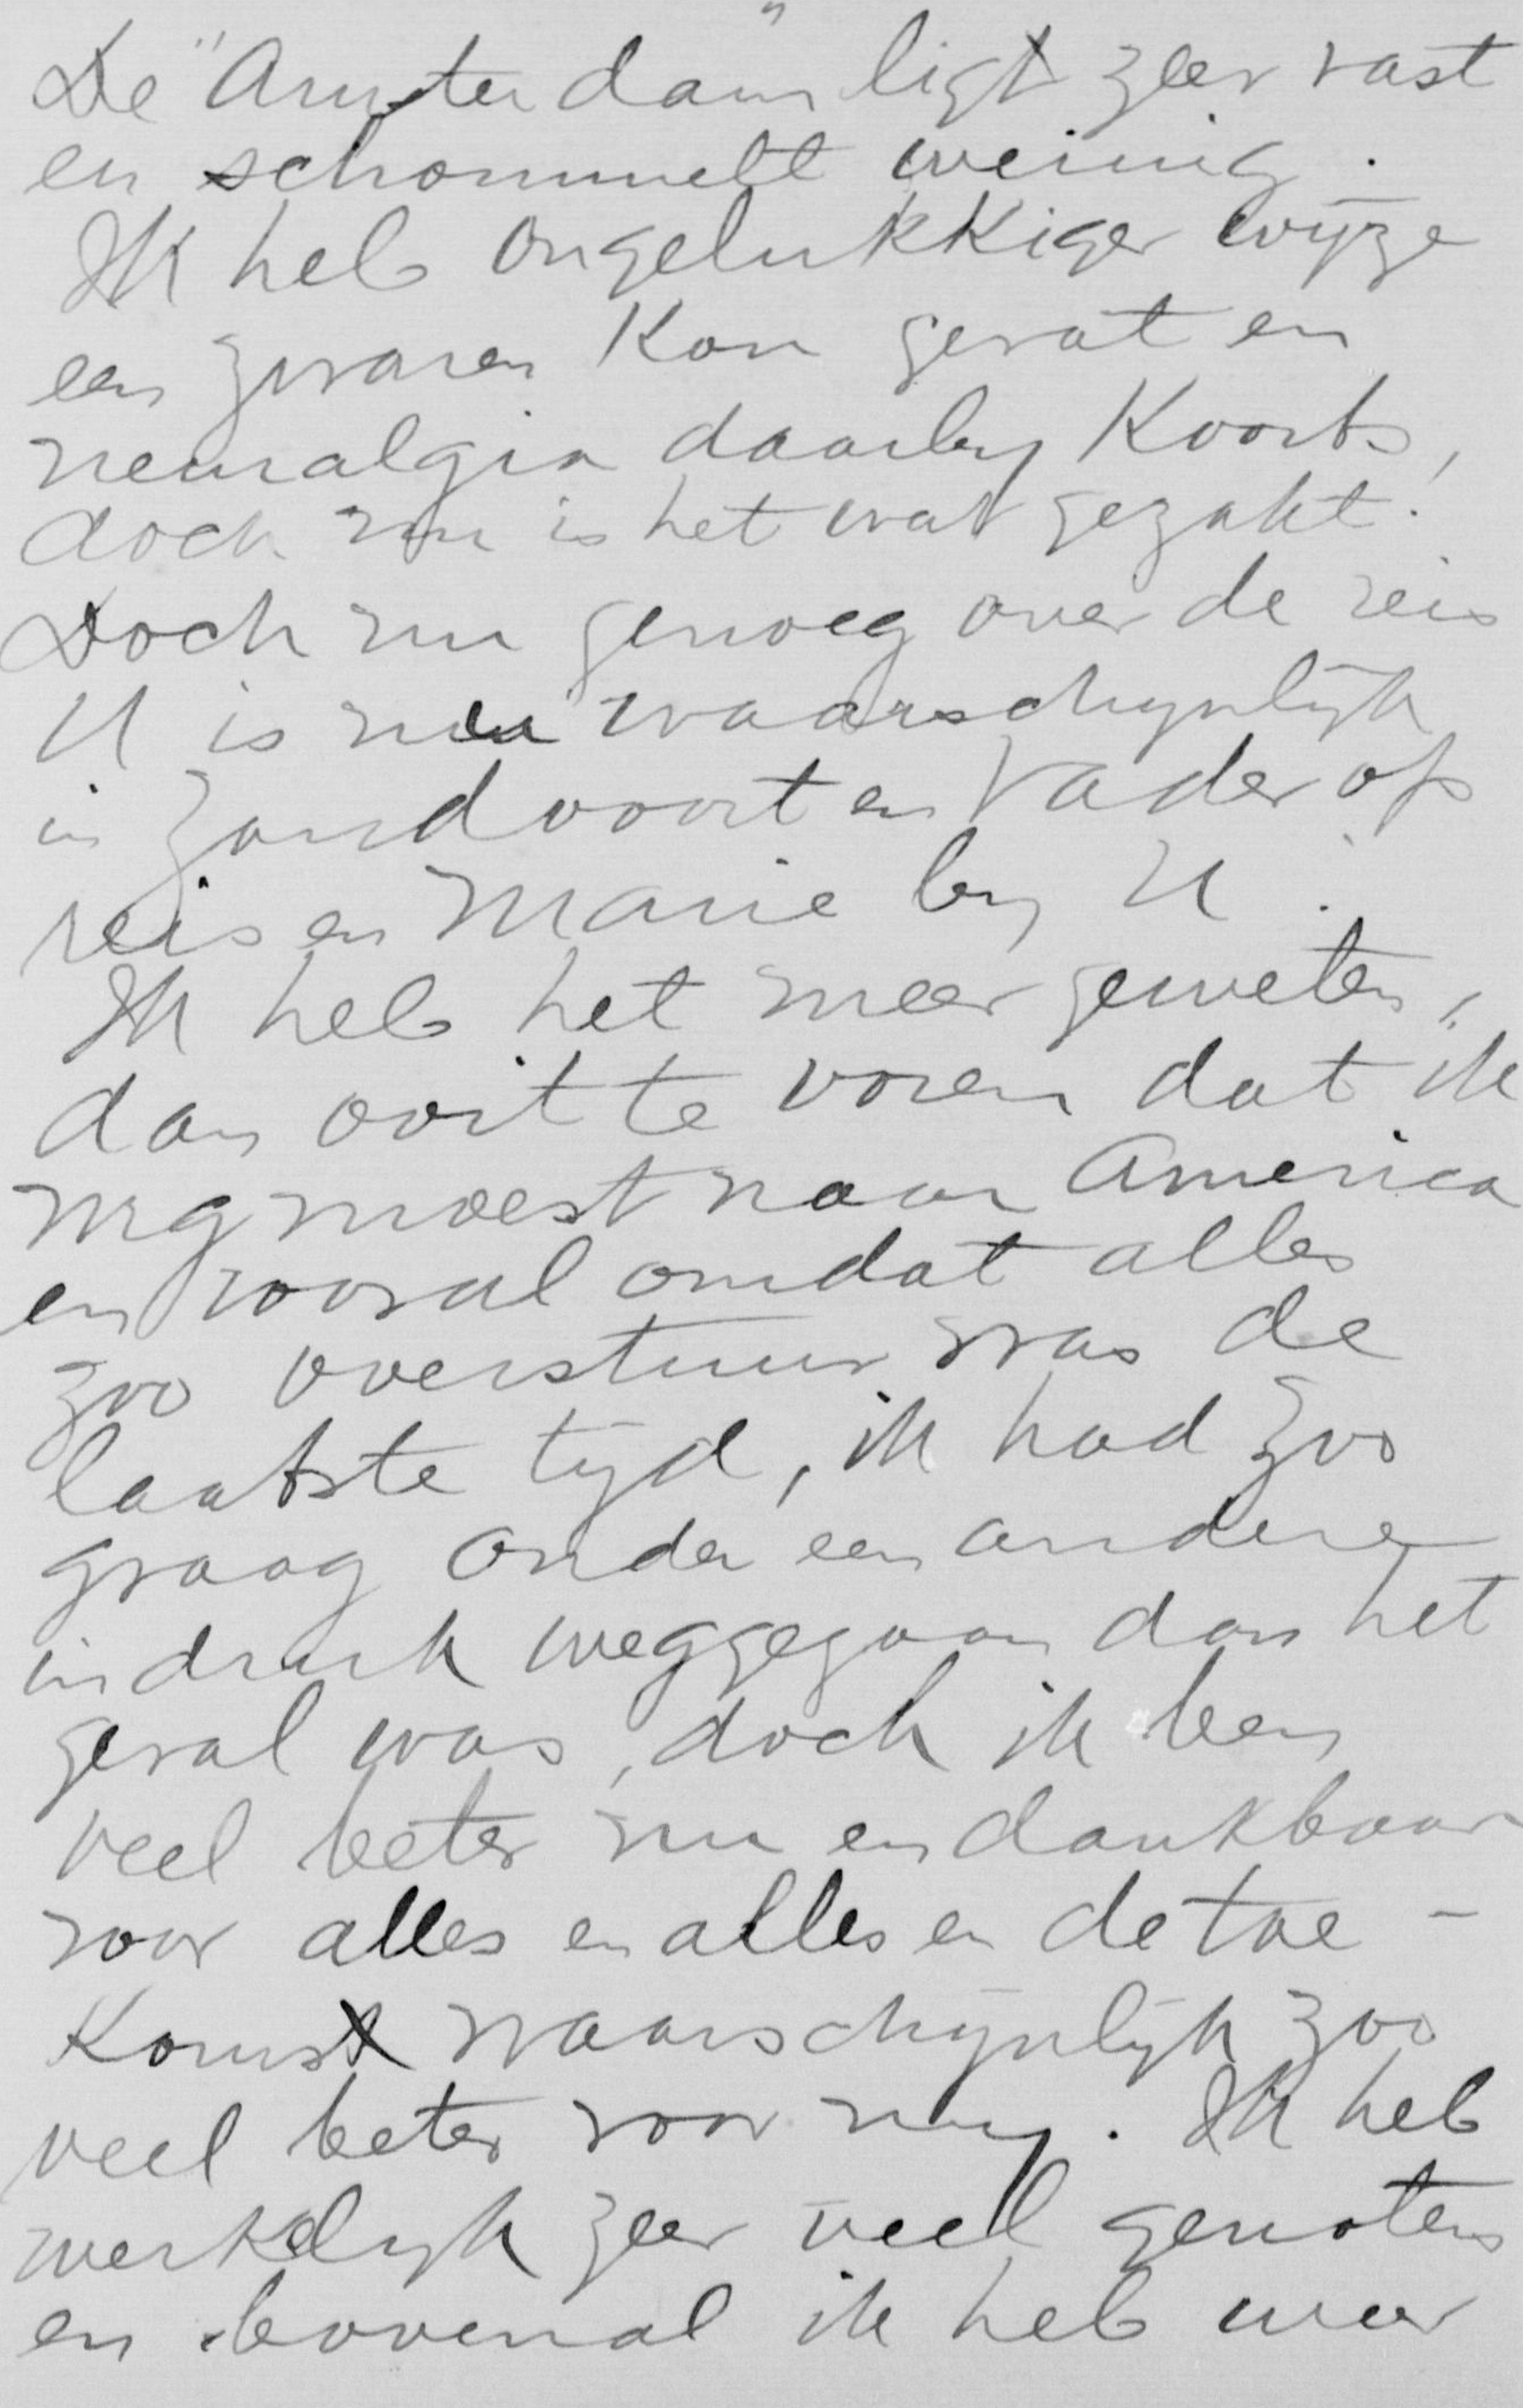 De "Amsterdam" ligt zeer vast
en schommelt weinig.
Ik heb ongelukkiger wijze
een zwaren Kou gevat en
neuralgia daarby Koorts,
doch nu is het wat gezakt.
Doch nu genoeg over de reis
U is nu waarschijnlijk
in Zandvoort en Vader op
reis en Marie by U.
Ik heb het meer geweten,
dan ooit te voren dat ik
weg moest naar America
en vooral omdat alles
zoo overstuur was de
laatste tijd, ik had zoo
graag onder een andere
indruk weggegaan dan het
geval was, doch ik ben
veel beter nu en dankbaar
voor alles en alles en de toe-
Komst waarschijnlijk zoo
veel beter voor my. Ik heb
werkelyk zeer veel genoten
en bovenal ik heb weer